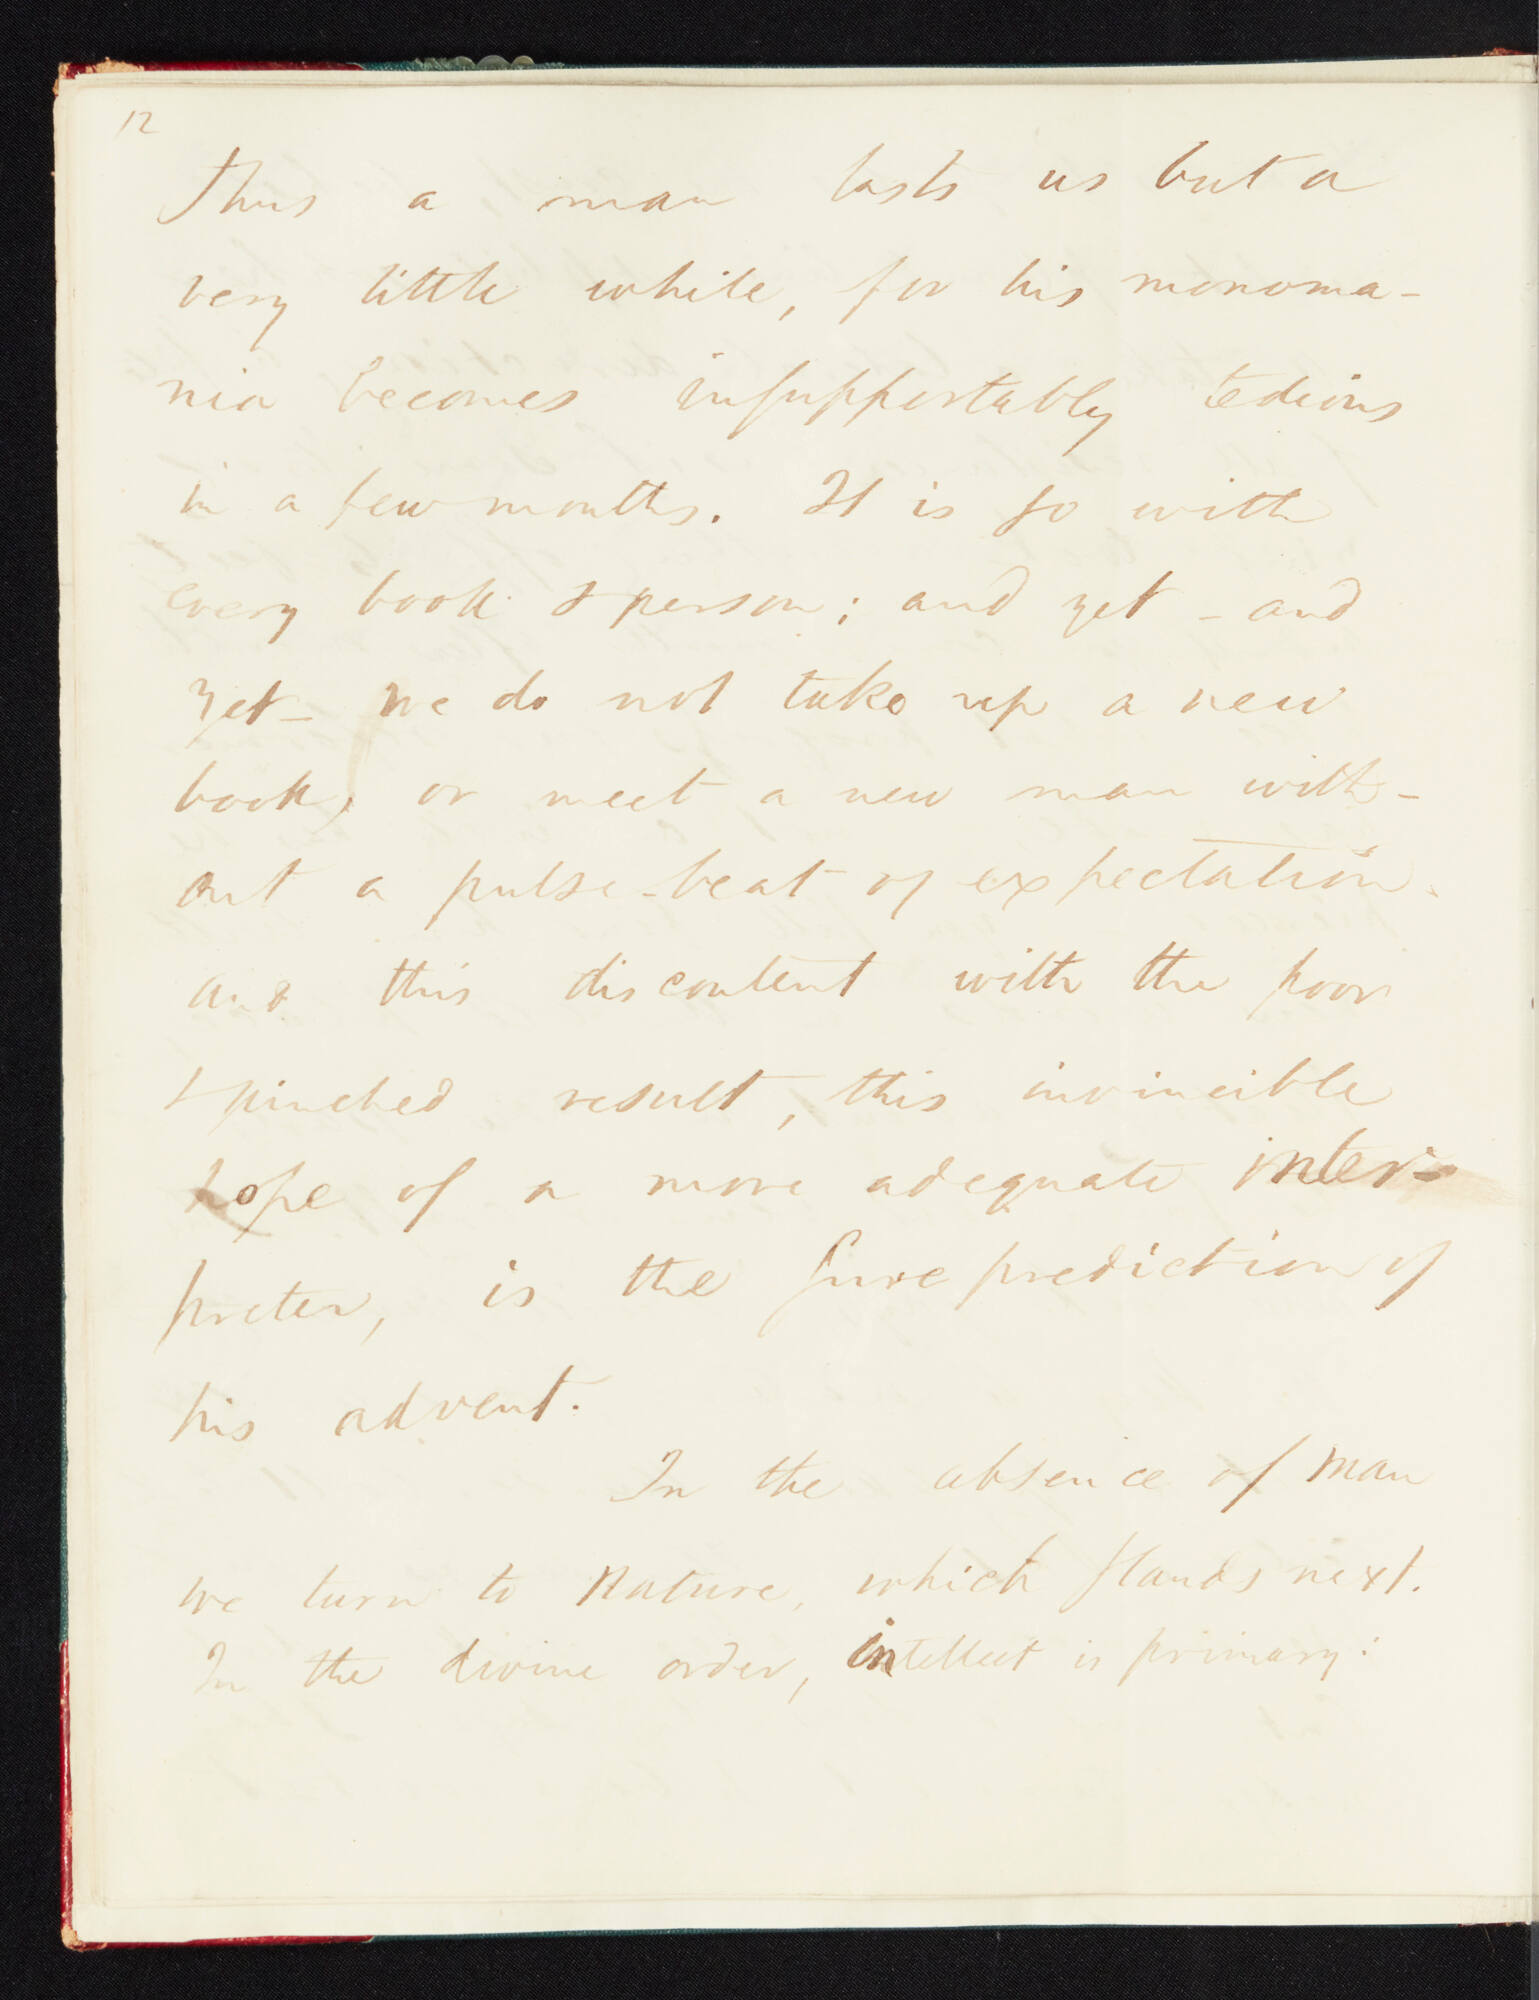 12
Thus a man lasts us but a
very little while, for his monoma-
nia becomes insupportably tedious
in a few months. It is so with
every book & person; and yet - and
yet - we do not take up a new
book, or meet a new man with-
out a pulse-beat of expectation.
And this discontent with the poor
& pinched result, this invincible
hope of a more adequate inter-
preter, is the sure prediction of
his advent.
In the absence of man
we turn to nature, which stands next.
In the divine order, intellect is primary: